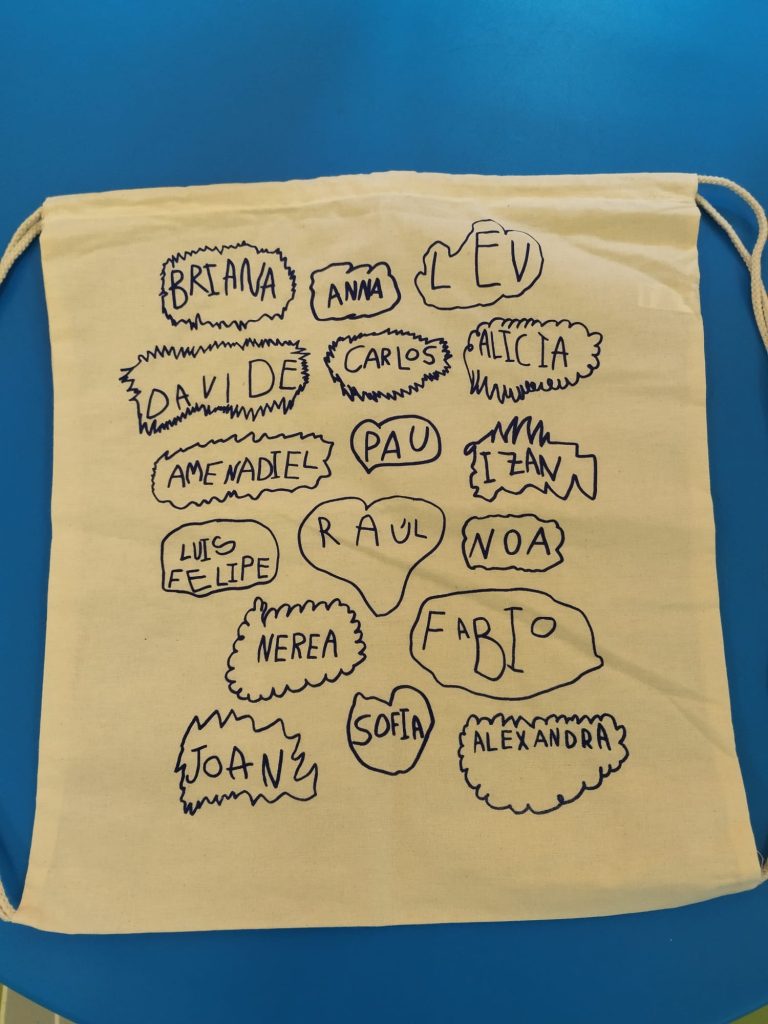 BRIANA
ANNA
LEV
DAVIDE
CARLOS
ALICIA
AMENADIEL
PAU
IZAN
LUIS
FELIPE
RAÚL
NOA
NEREA
FABIO
JOAN
SOFIA
ALEXANDRA